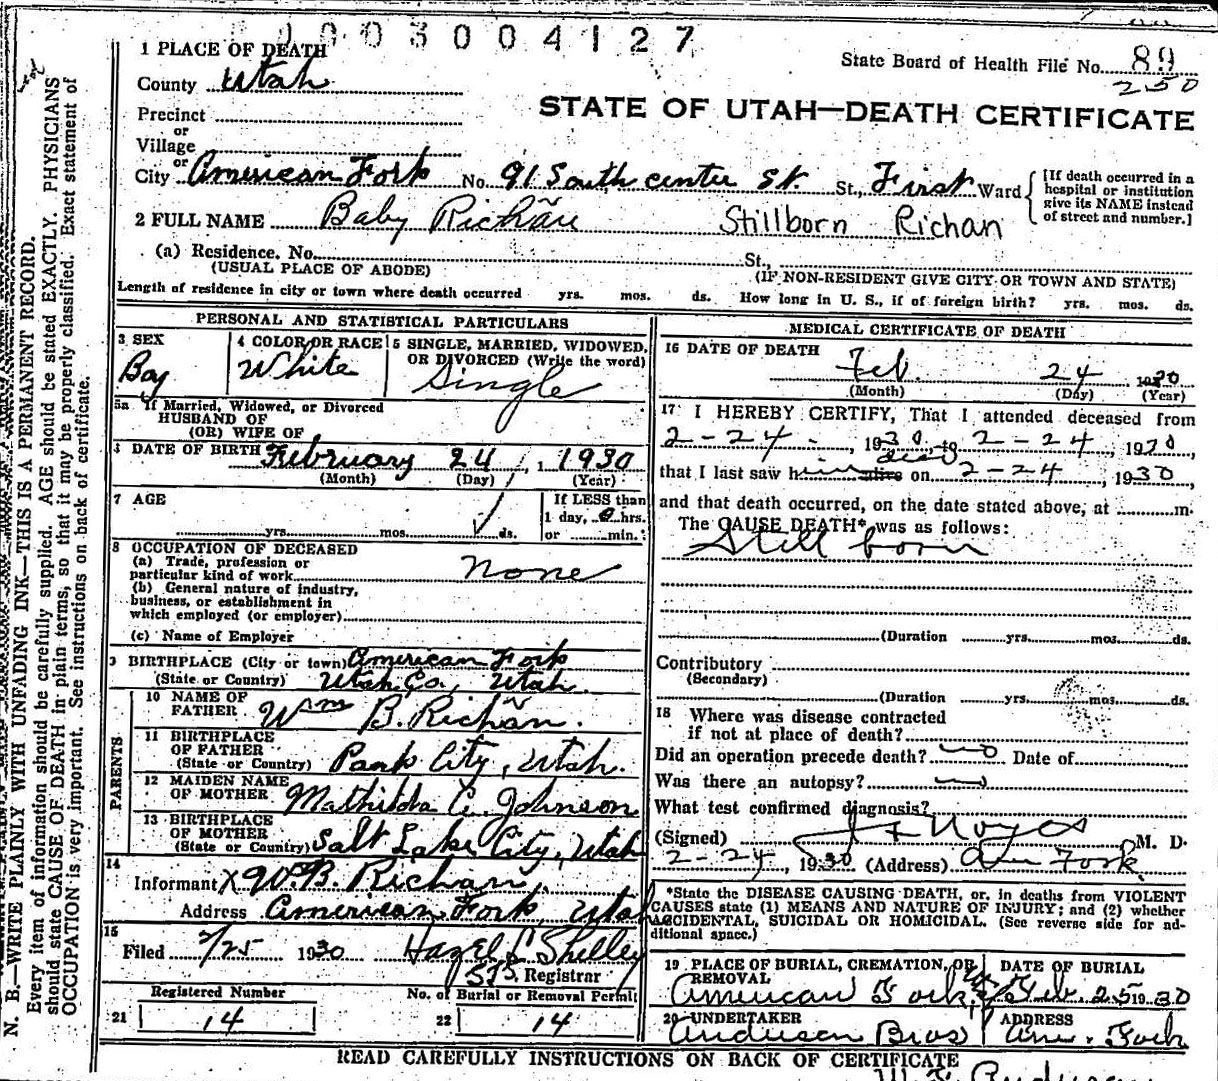 003004127
1 PLACE OF DEATH
State Board of Health File No. 89
County Utah
250
STATE OF UTAH—DEATH CERTIFICATE
Precinct
or
Village
or
City American Fork No. 91 South center St. St., First Ward
[If death occurred in a
hospital or institution
give its NAME instead
of street and number.]
2 FULL NAME Baby Richan Stillborn Richan
(a) Residence. No. St.,
(USUAL PLACE OF ABODE) (IF NON-RESIDENT GIVE CITY OR TOWN AND STATE)
Length of residence in city or town where death occurred yrs. mos. ds. How long in U. S., if of foreign birth? yrs. mos. ds.
PERSONAL AND STATISTICAL PARTICULARS
3 SEX
Boy
4 COLOR OR RACE
White
5 SINGLE, MARRIED, WIDOWED,
OR DIVORCED (Write the word)
Single
5a If Married, Widowed, or Divorced
HUSBAND OF
(OR) WIFE OF
DATE OF BIRTH February 24, 1930
(Month) (Day) (Year)
7 AGE
yrs. mos. ds.
If LESS than
1 day, 0 hrs.
or min.
8 OCCUPATION OF DECEASED
(a) Trade, profession or
particular kind of work None
(b) General nature of industry,
business, or establishment in
which employed (or employer)
(c) Name of Employer
9 BIRTHPLACE (City or town) American Fork
(State or Country) Utah Co., Utah.
PARENTS
10 NAME OF
FATHER Wm B. Richan.
11 BIRTHPLACE
OF FATHER
(State or Country) Park City, Utah.
12 MAIDEN NAME
OF MOTHER Mathilda C. Johnson
13 BIRTHPLACE
OF MOTHER
(State or Country) Salt Lake City, Utah
14
Informant X W.B. Richan.
Address American Fork, Utah
15
Filed 2/25 1930 Hazel L Shelley
Registrar
Registered Number No. of Burial or Removal Permit
21 14 22 14
MEDICAL CERTIFICATE OF DEATH
16 DATE OF DEATH
Feb. 24 1930
(Month) (Day) (Year)
17 I HEREBY CERTIFY, That I attended deceased from
2-24-, 1930, to 2-24, 1930
dead
that I last saw him alive on 2-24, 1930,
and that death occurred, on the date stated above, at m.
The CAUSE DEATH* was as follows:
Still born
(Duration yrs. mos. ds.
Contributory
(Secondary)
(Duration yrs. mos. ds.
18 Where was disease contracted
if not at place of death?
Did an operation precede death? no Date of
Was there an autopsy? no
What test confirmed diagnosis?
(Signed) Noyes M. D.
2-24, 1930 (Address) Am Fork.
*State the DISEASE CAUSING DEATH, or, in deaths from VIOLENT
CAUSES state (1) MEANS AND NATURE OF INJURY; and (2) whether
ACCIDENTAL, SUICIDAL OR HOMICIDAL. (See reverse side for ad-
ditional space.)
19 PLACE OF BURIAL, CREMATION, OR
REMOVAL
American Fork,
DATE OF BURIAL
Feb. 25 1930
20 UNDERTAKER
Anderson Bros
ADDRESS
Am. Fork
READ CAREFULLY INSTRUCTIONS ON BACK OF CERTIFICATE
N. B.—WRITE PLAINLY WITH UNFADING INK—THIS IS A PERMANENT RECORD.
Every item of information should be carefully supplied. AGE should be stated EXACTLY. PHYSICIANS
should state CAUSE OF DEATH in plain terms, so that it may be properly classified. Exact statement of
OCCUPATION is very important. See instructions on back of certificate.